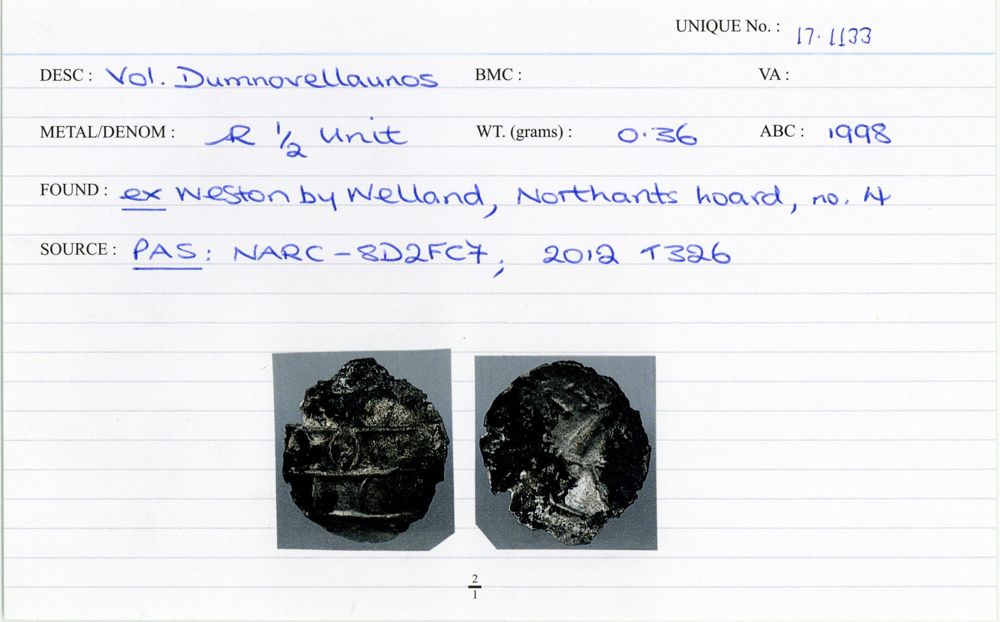 UNIQUE No. : 17.1133
DESC : Vol. Dumnovellaunos BMC : VA :
METAL/DENOM : AR 1/2 Unit WT. (grams) : 0.36 ABC : 1998
FOUND : ex Weston by Welland, Northants hoard, no. 4
SOURCE : PAS: NARC-8D2FC7, 2012 T326
2
1